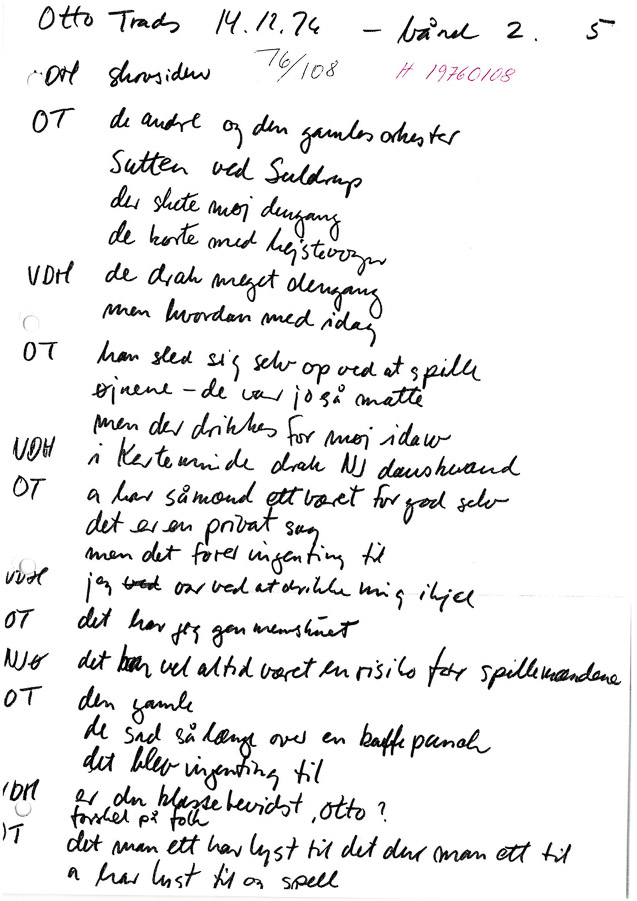 Otto Trads 14.12.76 – bånd 2. 5
76/108 H 19760108
VDH skovsiden
OT de andre og den gamles orkester
Sutten ved Suldrup
der skete møj dengang
de korte med hejstevogn
VDH de drak meget dengang
men hvordan med idag
OT han sled sig selv op ved at spille
øjnene – de var jo så matte
men der drikkes for møj idaw
VDH i Kerteminde drak NJ danskvand
OT a har såmænd ett været for god selv
det er en privat sag
men det fører ingenting til
VDH jeg var ved at drikke mig ihjel
OT det har jeg gennemskuet
det har vel altid været en risiko for spillemændene
OT den gamle
de sad så længe over en kaffepunch
det blev ingenting til
VDH er du klassebevidst, Otto?
forskel på folk
OT det man ett har lyst til det dur man ett til
a har lyst til og spell